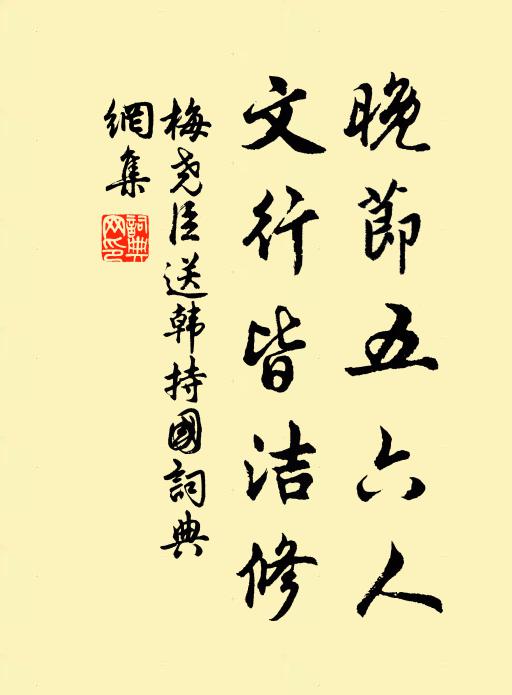 晚節五六人
文行皆洁修
梅尧臣送韩持國詞典
網集
詞典網印